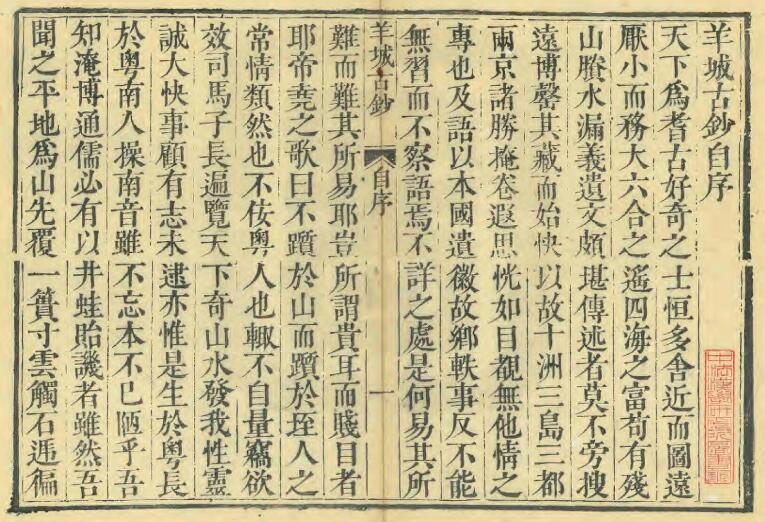 羊城古鈔自序
天下爲耆古好奇之士恒多舍近而圖遠
厭小而務大六合之遙四海之富苟有殘
山賸水漏義遺文頗堪傳述者莫不旁搜
遠博罄其藏而始快以故十洲三島三都
兩京諸勝掩卷遐思恍如目覩無他情之
專也及語以本國遺徽故鄉軼事反不能
無習而不察語焉不詳之處是何易其所
羊城古鈔 自序 一
難而難其所易耶豈所謂貴耳而賤目者
耶帝堯之歌曰不躓於山而躓於垤人之
常情類然也不佞粵人也輙不自量竊欲
效司馬子長遍覽天下奇山水發我性靈
誠大快事顧有志未逮亦惟是生於粵長
於粵南人操南音雖不忘本不已陋乎吾
知淹博通儒必有以井蛙貽譏者雖然吾
聞之平地爲山先覆一簣寸雲觸石遍